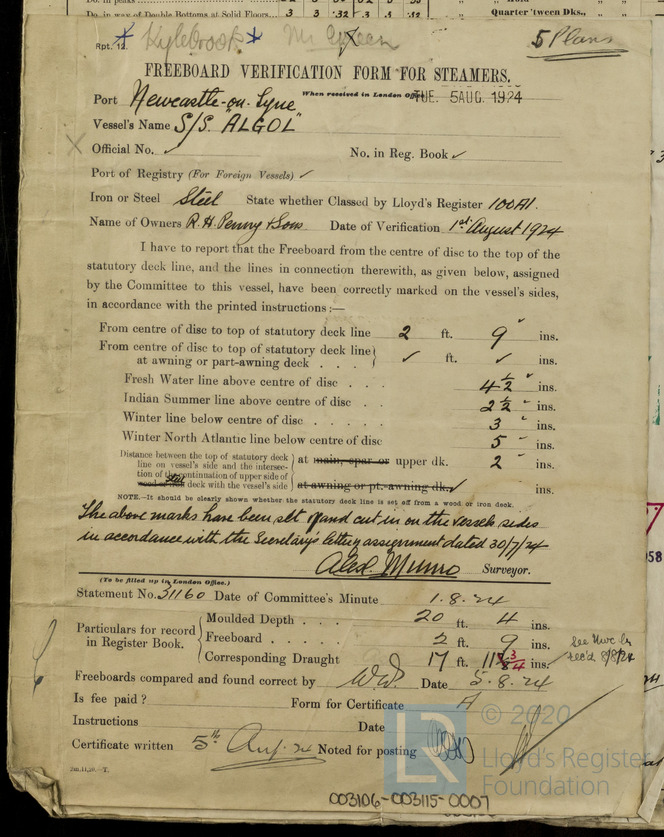 Do. in peaks
Do. in way of Double Bottoms at Solid Floors... 3 3 .32 3 3 .52
Quarter 'tween Dks.,
Rpt. 12. Kylebrook 5 Plans
FREEBOARD VERIFICATION FORM FOR STEAMERS.
When received in London Office TUE. 5 AUG. 1924
Port Newcastle-on-Tyne
Vessel's Name S/S. "ALGOL"
Official No. ✓ No. in Reg. Book ✓
Port of Registry (For Foreign Vessels) ✓
Iron or Steel Steel State whether Classed by Lloyd's Register 100A1.
Name of Owners R. H. Penny & Sons Date of Verification 1st August 1924
I have to report that the Freeboard from the centre of disc to the top of the
statutory deck line, and the lines in connection therewith, as given below, assigned
by the Committee to this vessel, have been correctly marked on the vessel's sides,
in accordance with the printed instructions :—
From centre of disc to top of statutory deck line 2 ft. 9 ins.
From centre of disc to top of statutory deck line
at awning or part-awning deck . . . ✓ ft. ✓ ins.
Fresh Water line above centre of disc . . . 4½ ins.
Indian Summer line above centre of disc . . 2½ ins.
Winter line below centre of disc . . . . . 3 ins.
Winter North Atlantic line below centre of disc 5 ins.
Distance between the top of statutory deck
line on vessel's side and the intersec-
tion of the continuation of upper side of
steel deck with the vessel's side
at main, spar or upper dk. 2 ins.
at awning or pt.-awning dk. ✓ ins.
NOTE.—It should be clearly shown whether the statutory deck line is set off from a wood or iron deck.
The above marks have been set off and cut in on the vessels sides
in accordance with the Secretary's letter assignment dated 30/7/24
Aled. Munro Surveyor.
(To be filled up in London Office.)
Statement No. 31160 Date of Committee's Minute 1.8.24
Particulars for record
in Register Book.
Moulded Depth . . . 20 ft. 4 ins.
Freeboard . . . . . 2 ft. 9 ins.
Corresponding Draught 17 ft. 11¾ ins.
See Nwc
rec'd 8/8/24
Freeboards compared and found correct by W.W. Date 5.8.24
Is fee paid? Form for Certificate A
Instructions Date
Certificate written 5th Aug. 24 Noted for posting
2m,11,20.—T.
LR
© 2020
Lloyd's Register
Foundation
003106-003115-0007